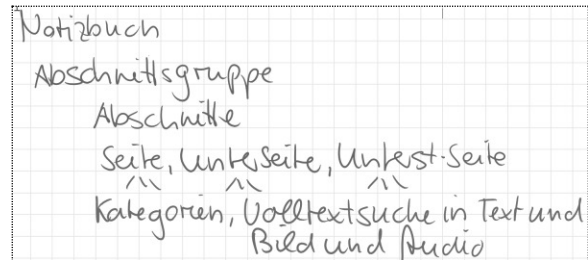 Notizbuch
Abschnittsgruppe
Abschnitte
Seite, Unterseite, Unterst.Seite
Kategorien, Volltextsuche in Text und
Bild und Audio